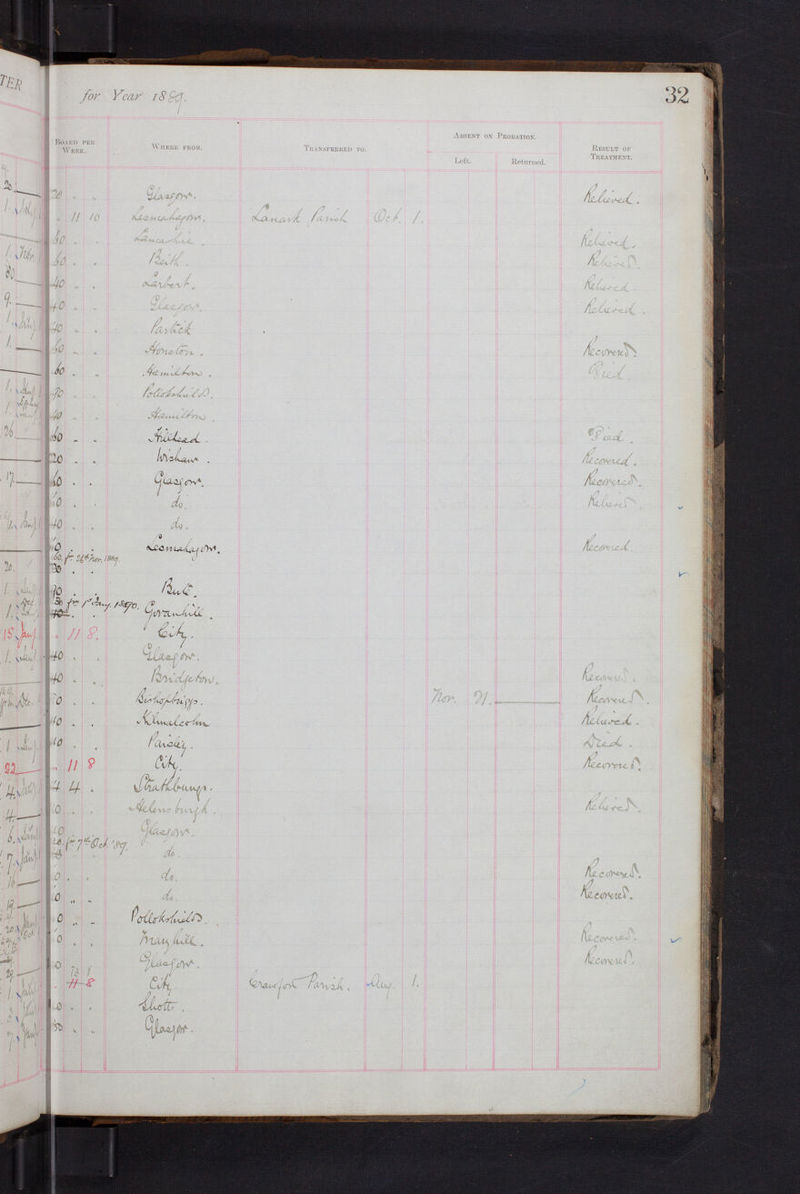 TER
for Year 1889.
32
BOARD PER WEEK.
WHERE FROM.
TRANSFERRED TO.
ABSENT ON PROBATION.
Left.
Returned.
RESULT OF TREATMENT.
Glasgow. Relieved.
11 10 Lesmahagow. Lanark Parish Oct. 1.
60 . . Lancashire. Relieved.
60 . . Beith. Relieved.
40 . . Larbert. Relieved.
40 . . Glasgow. Relieved.
40 . . Partick
60 . . Houston. Recovered.
60 . . Hamilton. Died
Pollokshields.
40 . . Hamilton.
60 . . Hillhead. Died.
20 . . Wishaw. Recovered.
60 . . Glasgow. Recovered.
do. Relieved
40 . . do.
Lesmahagow. Recovered
fr 26th Nov. 1889.
90 . . Bute.
fr 1st Jany. 1890.
Govanhill.
11 8. City.
40 . . Glasgow.
40 . . Bridgeton. Recovered.
Bishopbriggs. Nov. 21. Recovered.
Kilmalcolm Relieved.
Paisley. Died.
11 8 City. Recovered.
4 4 . Strathbungo.
Helensburgh. Relieved.
Glasgow.
fr 7th Oct '89. do.
do. Recovered.
do. Recovered.
Pollokshields.
Maryhill. Recovered.
Glasgow. Recovered.
11 8 City Crawford Parish. Aug. 1.
Shotts.
Glasgow.